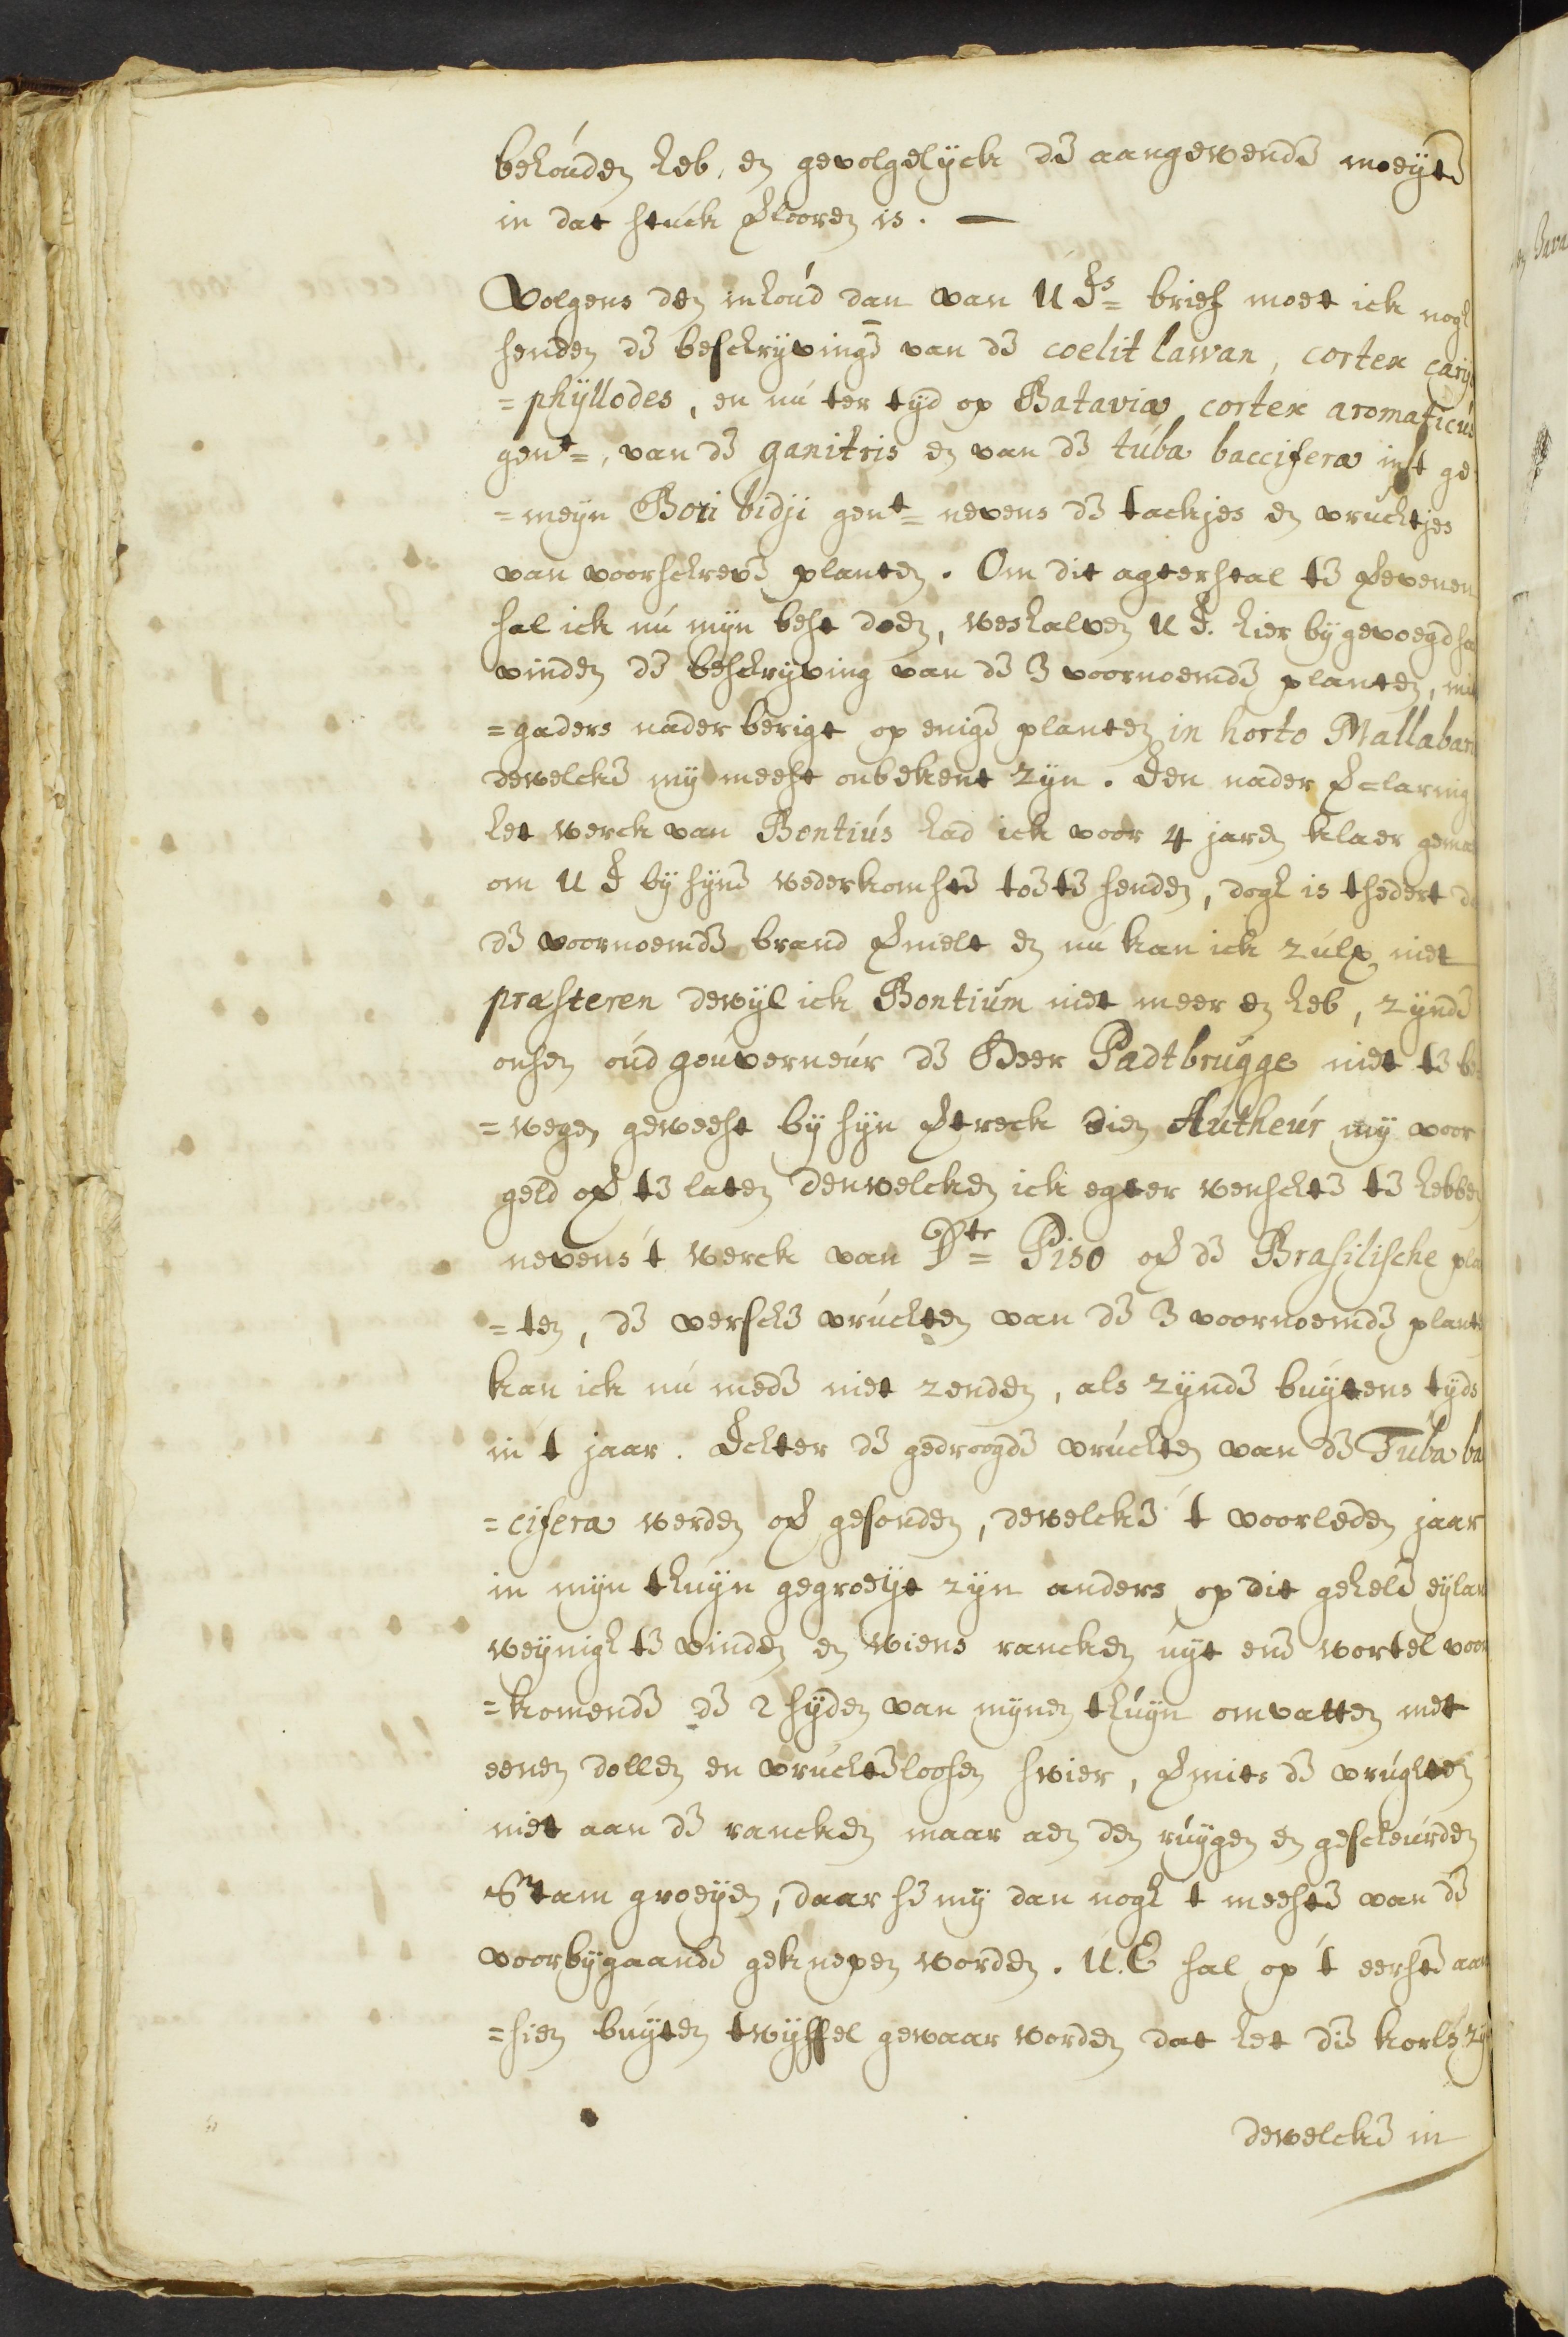 behouden heb, en gevolgelyck de aangewende moeÿte
in dat stuck verlooren is. —
Volgens den inhoud dan van U Es= brief moet ick nogh
senden de beschryvinge van de coelit lawan, cortex carÿo
=phÿllodes, en nu ter tyd op Batavia cortex aromaticus
gent=, van de ganitris en van de tuba baccifera in't ge
=meyn Bori bidji gent= nevens de tackjes en vruchtjes
van voorschreve planten. Om dit agterstal te verevenen
sal ick nu myn best doen, weshalven U E. hier by gevoegd sal
vinden de beschryving van de 3 voornoemde planten, mit
=gaders nader berigt op enige planten in horto Mallabar
dewelcke mÿ meest onbekent zyn. Een nader verclaring
het werck van Bontius had ick voor 4 jaren klaer gema
om U E bÿ sÿne wederkomste toe te senden, dogh is t'sedert do
de voornoemde brand vernielt en nu kan ick zulx niet
præsteren dewÿl ick Bontium niet meer en heb, zÿnde
onsen oud gouverneur de Heer Padtbrugge niet te be
=wegen geweest bÿ sÿn vertreck dien Autheur mÿ voor
geld over te laten denwelcken ick egter wenschte te hebben
nevens 't werck van Dr= Piso over de Brasilische plan
=ten, de versche vruchten van de 3 voornoemde plante
kan ick nu mede niet zenden, als zÿnde buÿtens tÿds
in 't jaar. Echter de gedroogde vruchten van de Tuba ba
=cifera werden over gesonden, dewelcke 't voorleden jaar
in mÿn thuÿn gegroeÿt zÿn anders op dit gehele eÿlan
weÿnigh te vinden en wiens rancken uÿt ene wortel voor
=komende de 2 sÿden van mÿnen thuÿn omvatten met
eenen dollen en vruchteloosen swier, vermits de vrughten
niet aan de rancken maar aen den ruÿgen en gescheurden
Stam groeÿen, daar se mÿ dan nogh 't meeste van de
voorbÿgaande geknepen worden. U.E sal op 't eerste aan
=sien buÿten twÿffel gewaar worden dat het die korls zÿ
dewelcke in